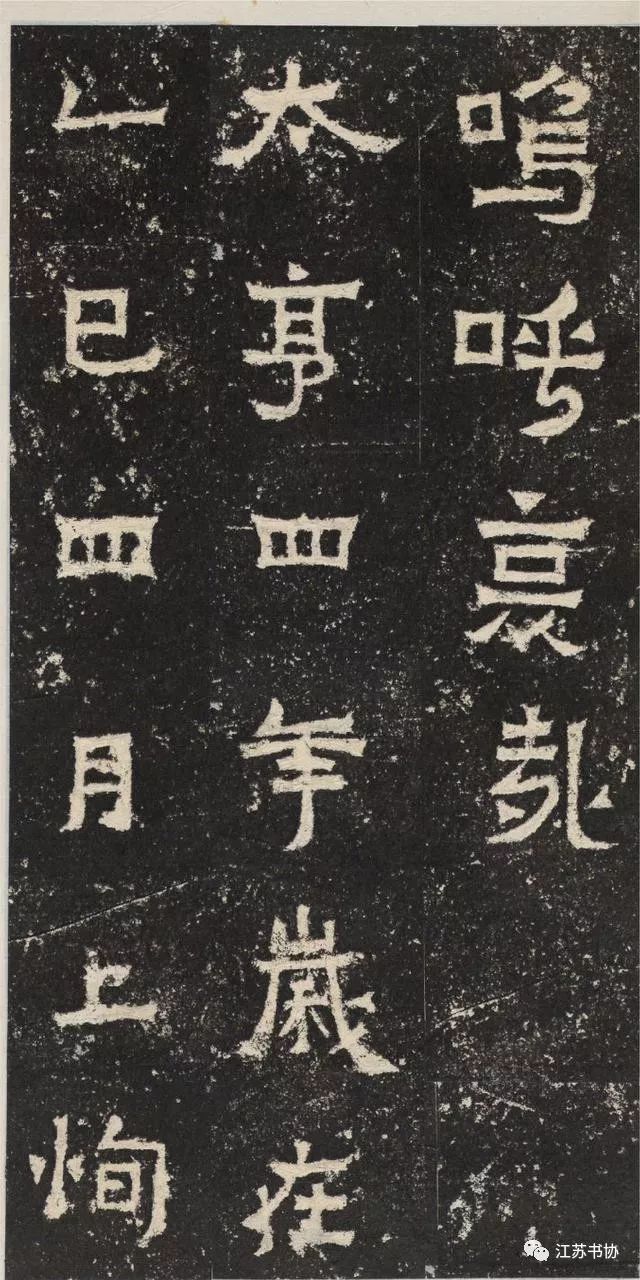 嗚呼哀哉
太亨四年歲在
乙巳四月上恂
江苏书协